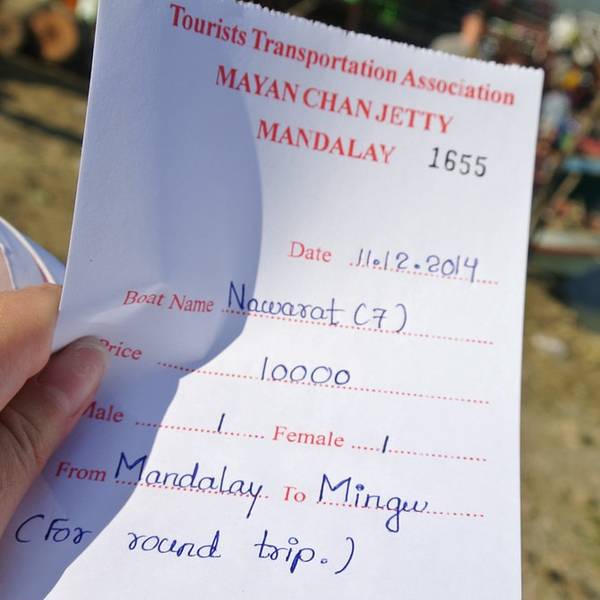 Tourists Transportation Association
MAYAN CHAN JETTY
MANDALAY 1655
Date 11.12.2014
Boat Name Nawarat (7)
Price 10000
Male 1 Female 1
From Mandalay To Mingu
(For round trip.)